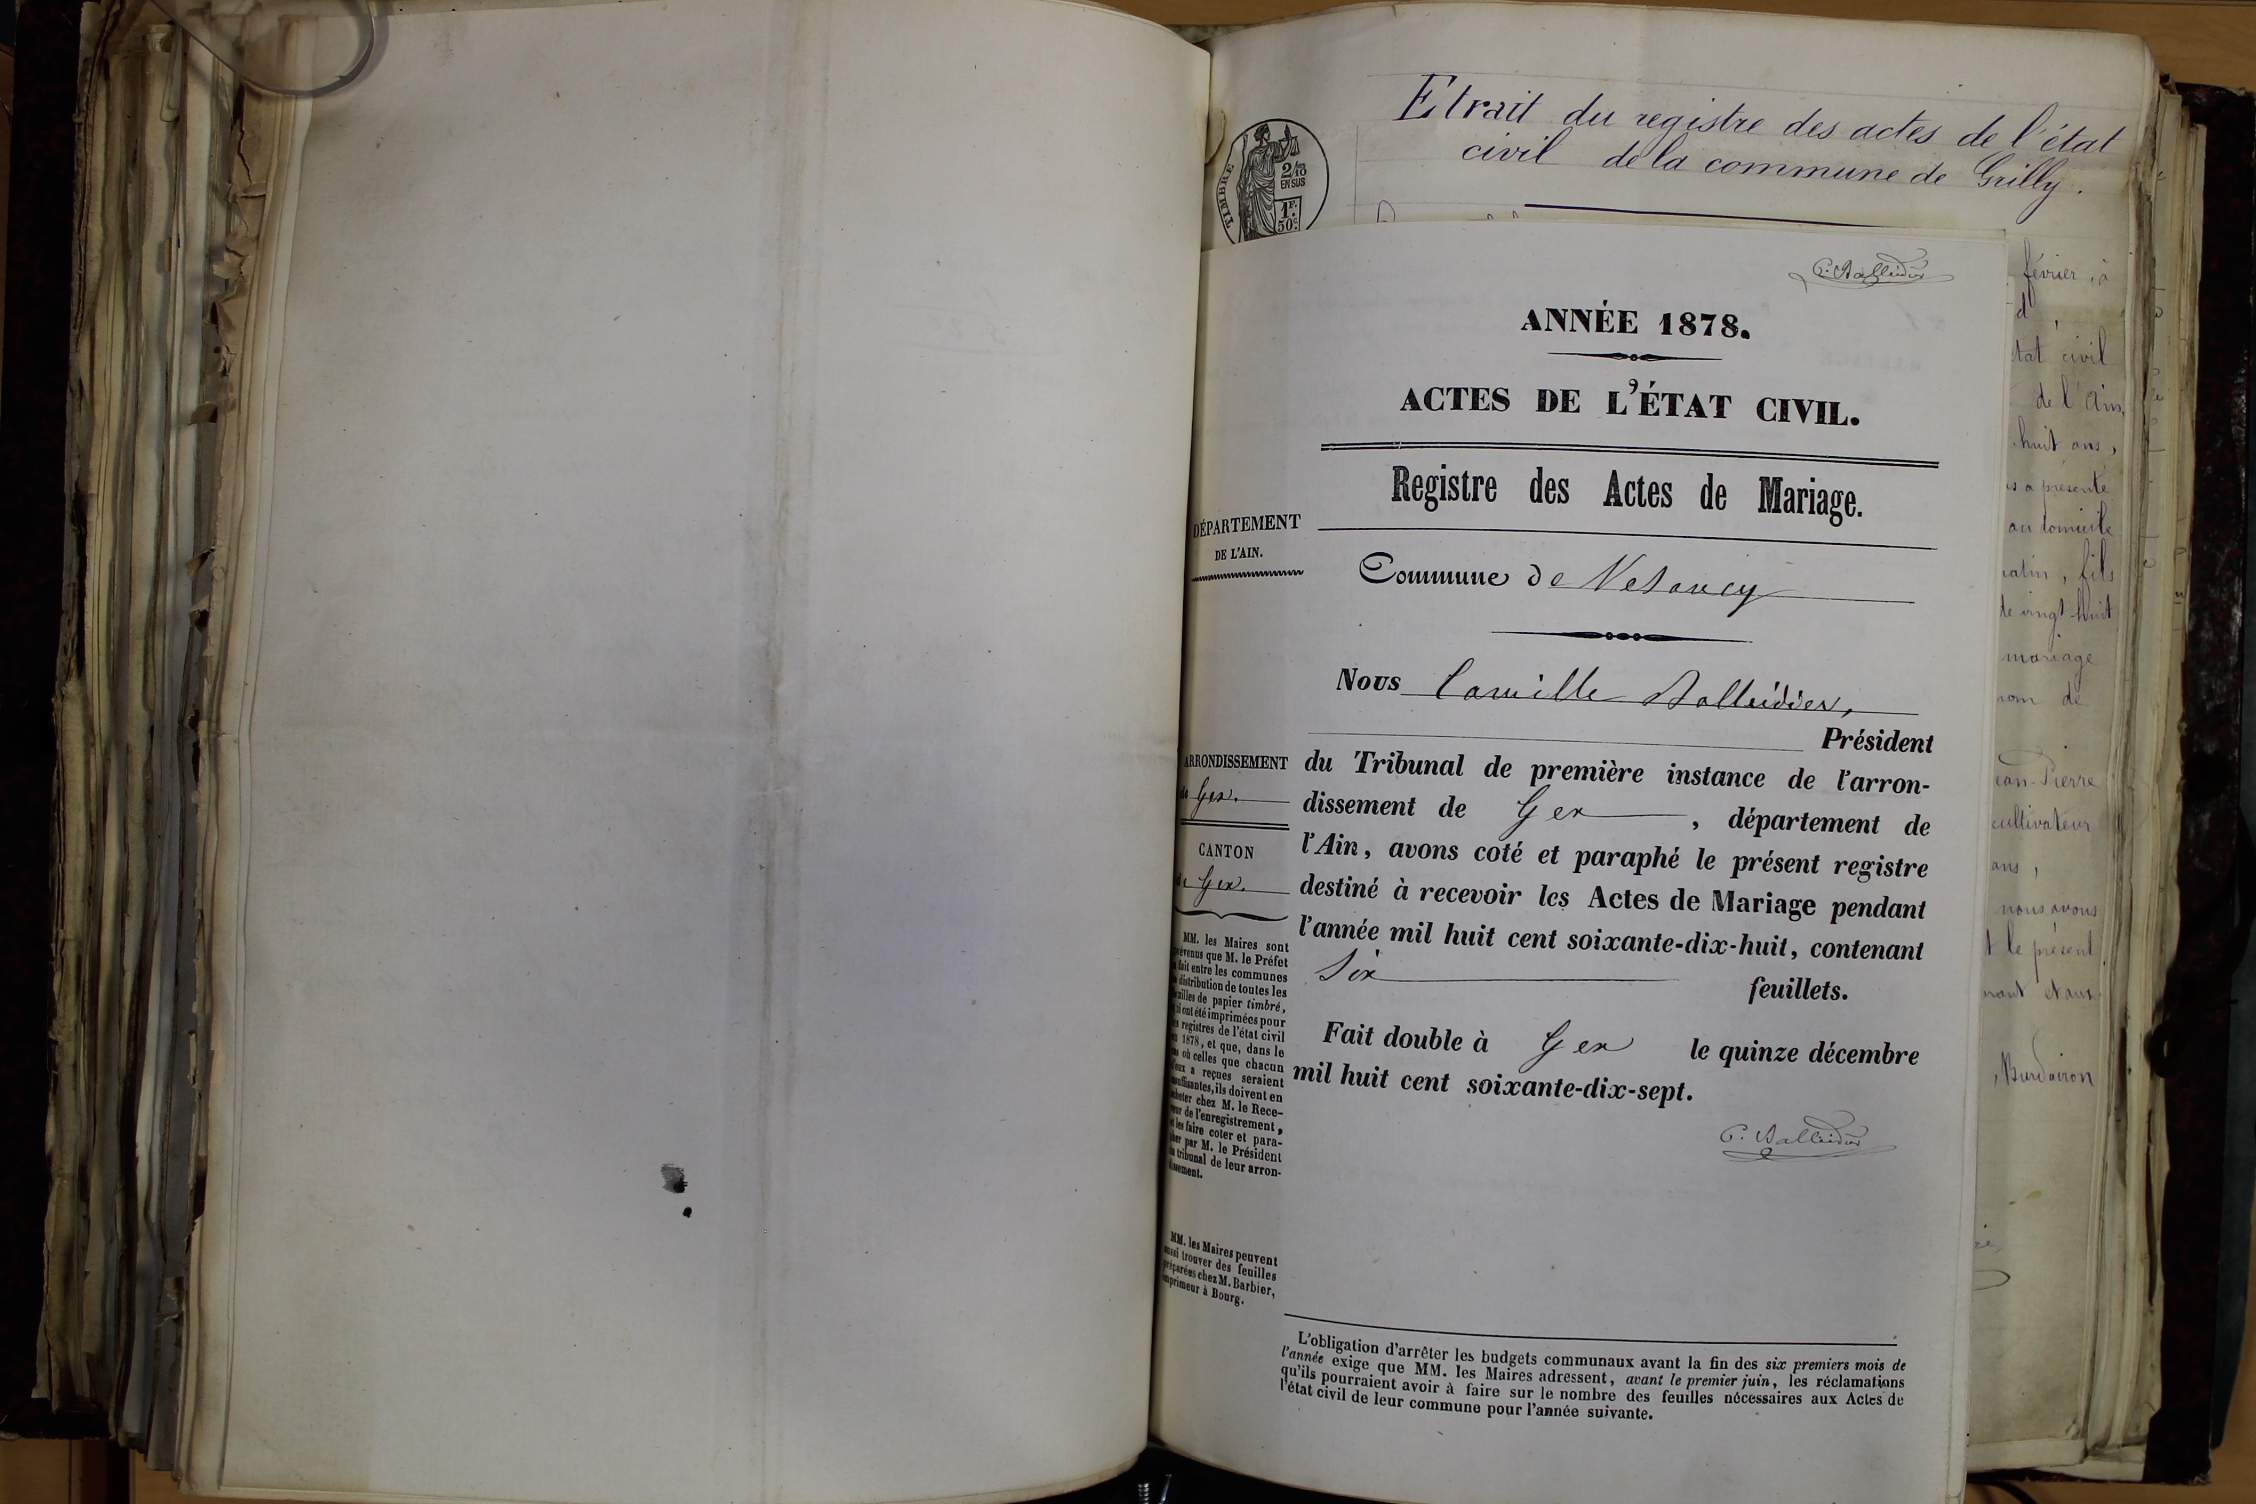 Etrait du registre des actes de l'état
civil de la commune de Grilly.
TIMBRE
2/10
EN SUS
1F.
50c.
C. Balleidier
ANNÉE 1878.
ACTES DE L'ÉTAT CIVIL.
Registre des Actes de Mariage.
DÉPARTEMENT
DE L'AIN.
Commune de Vesancy
Nous Camille Balleidier,
Président
du Tribunal de première instance de l'arron-
dissement de Gex, département de
l'Ain, avons coté et paraphé le présent registre
destiné à recevoir les Actes de Mariage pendant
l'année mil huit cent soixante-dix-huit, contenant
Six
feuillets.
Fait double à Gex le quinze décembre
mil huit cent soixante-dix-sept.
C. Balleidier
ARRONDISSEMENT
de Gex.
CANTON
de Gex.
MM. les Maires sont
prévenus que M. le Préfet
a fait entre les communes
la distribution de toutes les
feuilles de papier timbré,
qui ont été imprimées pour
les registres de l'état civil
en 1878, et que, dans le
cas où celles que chacun
d'eux a reçues seraient
insuffisantes, ils doivent en
acheter chez M. le Rece-
veur de l'enregistrement,
et les faire coter et para-
pher par M. le Président
du tribunal de leur arron-
dissement.
MM. les Maires peuvent
aussi trouver des feuilles
préparées chez M. Barbier,
imprimeur à Bourg.
L'obligation d'arrêter les budgets communaux avant la fin des six premiers mois de
l'année exige que MM. les Maires adressent, avant le premier juin, les réclamations
qu'ils pourraient avoir à faire sur le nombre des feuilles nécessaires aux Actes de
l'état civil de leur commune pour l'année suivante.
février, à
état civil
de l'Ain,
huit ans,
a présenté
au domicile
matin, fils
de vingt-huit
mariage
nom de
Jean-Pierre
cultivateur
ans,
nous avons
le présent
Burdairon